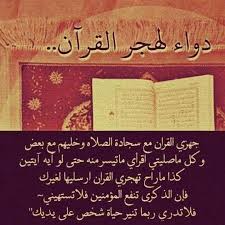 دواء لهجر القرآن..
جهزي القران مع سجادة الصلاه وخليهم مع بعض
وكل ماصليتي اقرأي ماتيسر منه حتى لو آيه آيتين
كذا ماراح تهجري القران ارسليها لغيرك
فإن الذكرى تنفع المؤمنين فلاتستهيني~
فلاتدري ربما تنير حياة شخص على يديك"